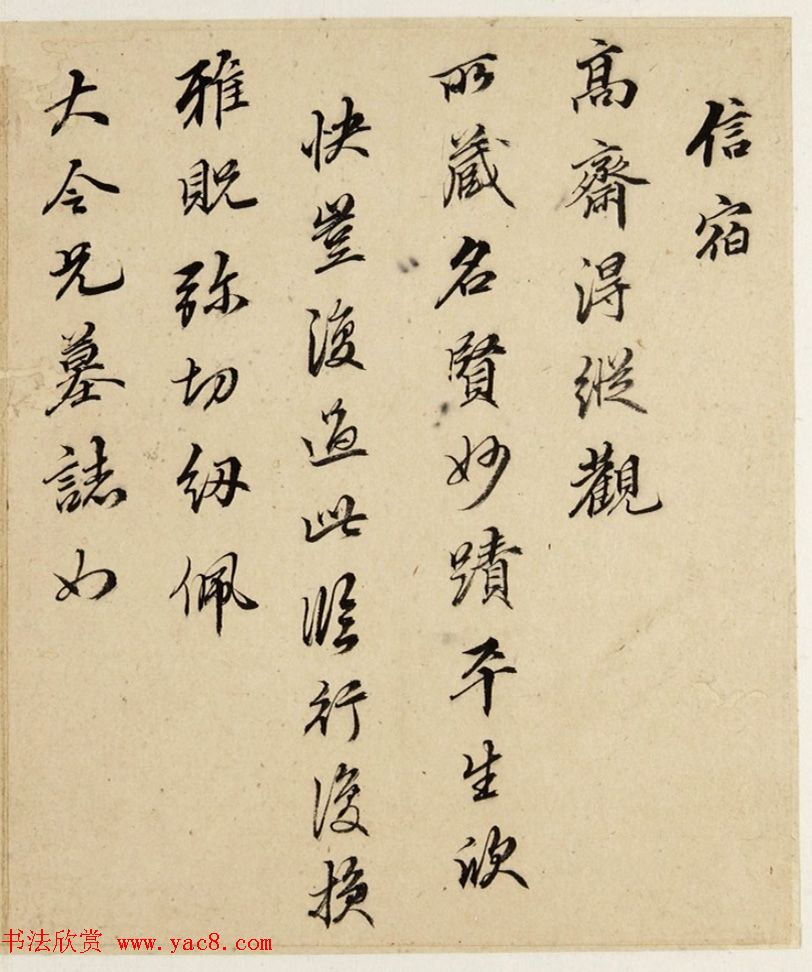 信宿
高齋得縱觀
所藏名賢妙蹟平生欣
快豈復過此臨行復損
雅貺弥切紉佩
大令兄墓誌如
书法欣赏 www.yac8.com